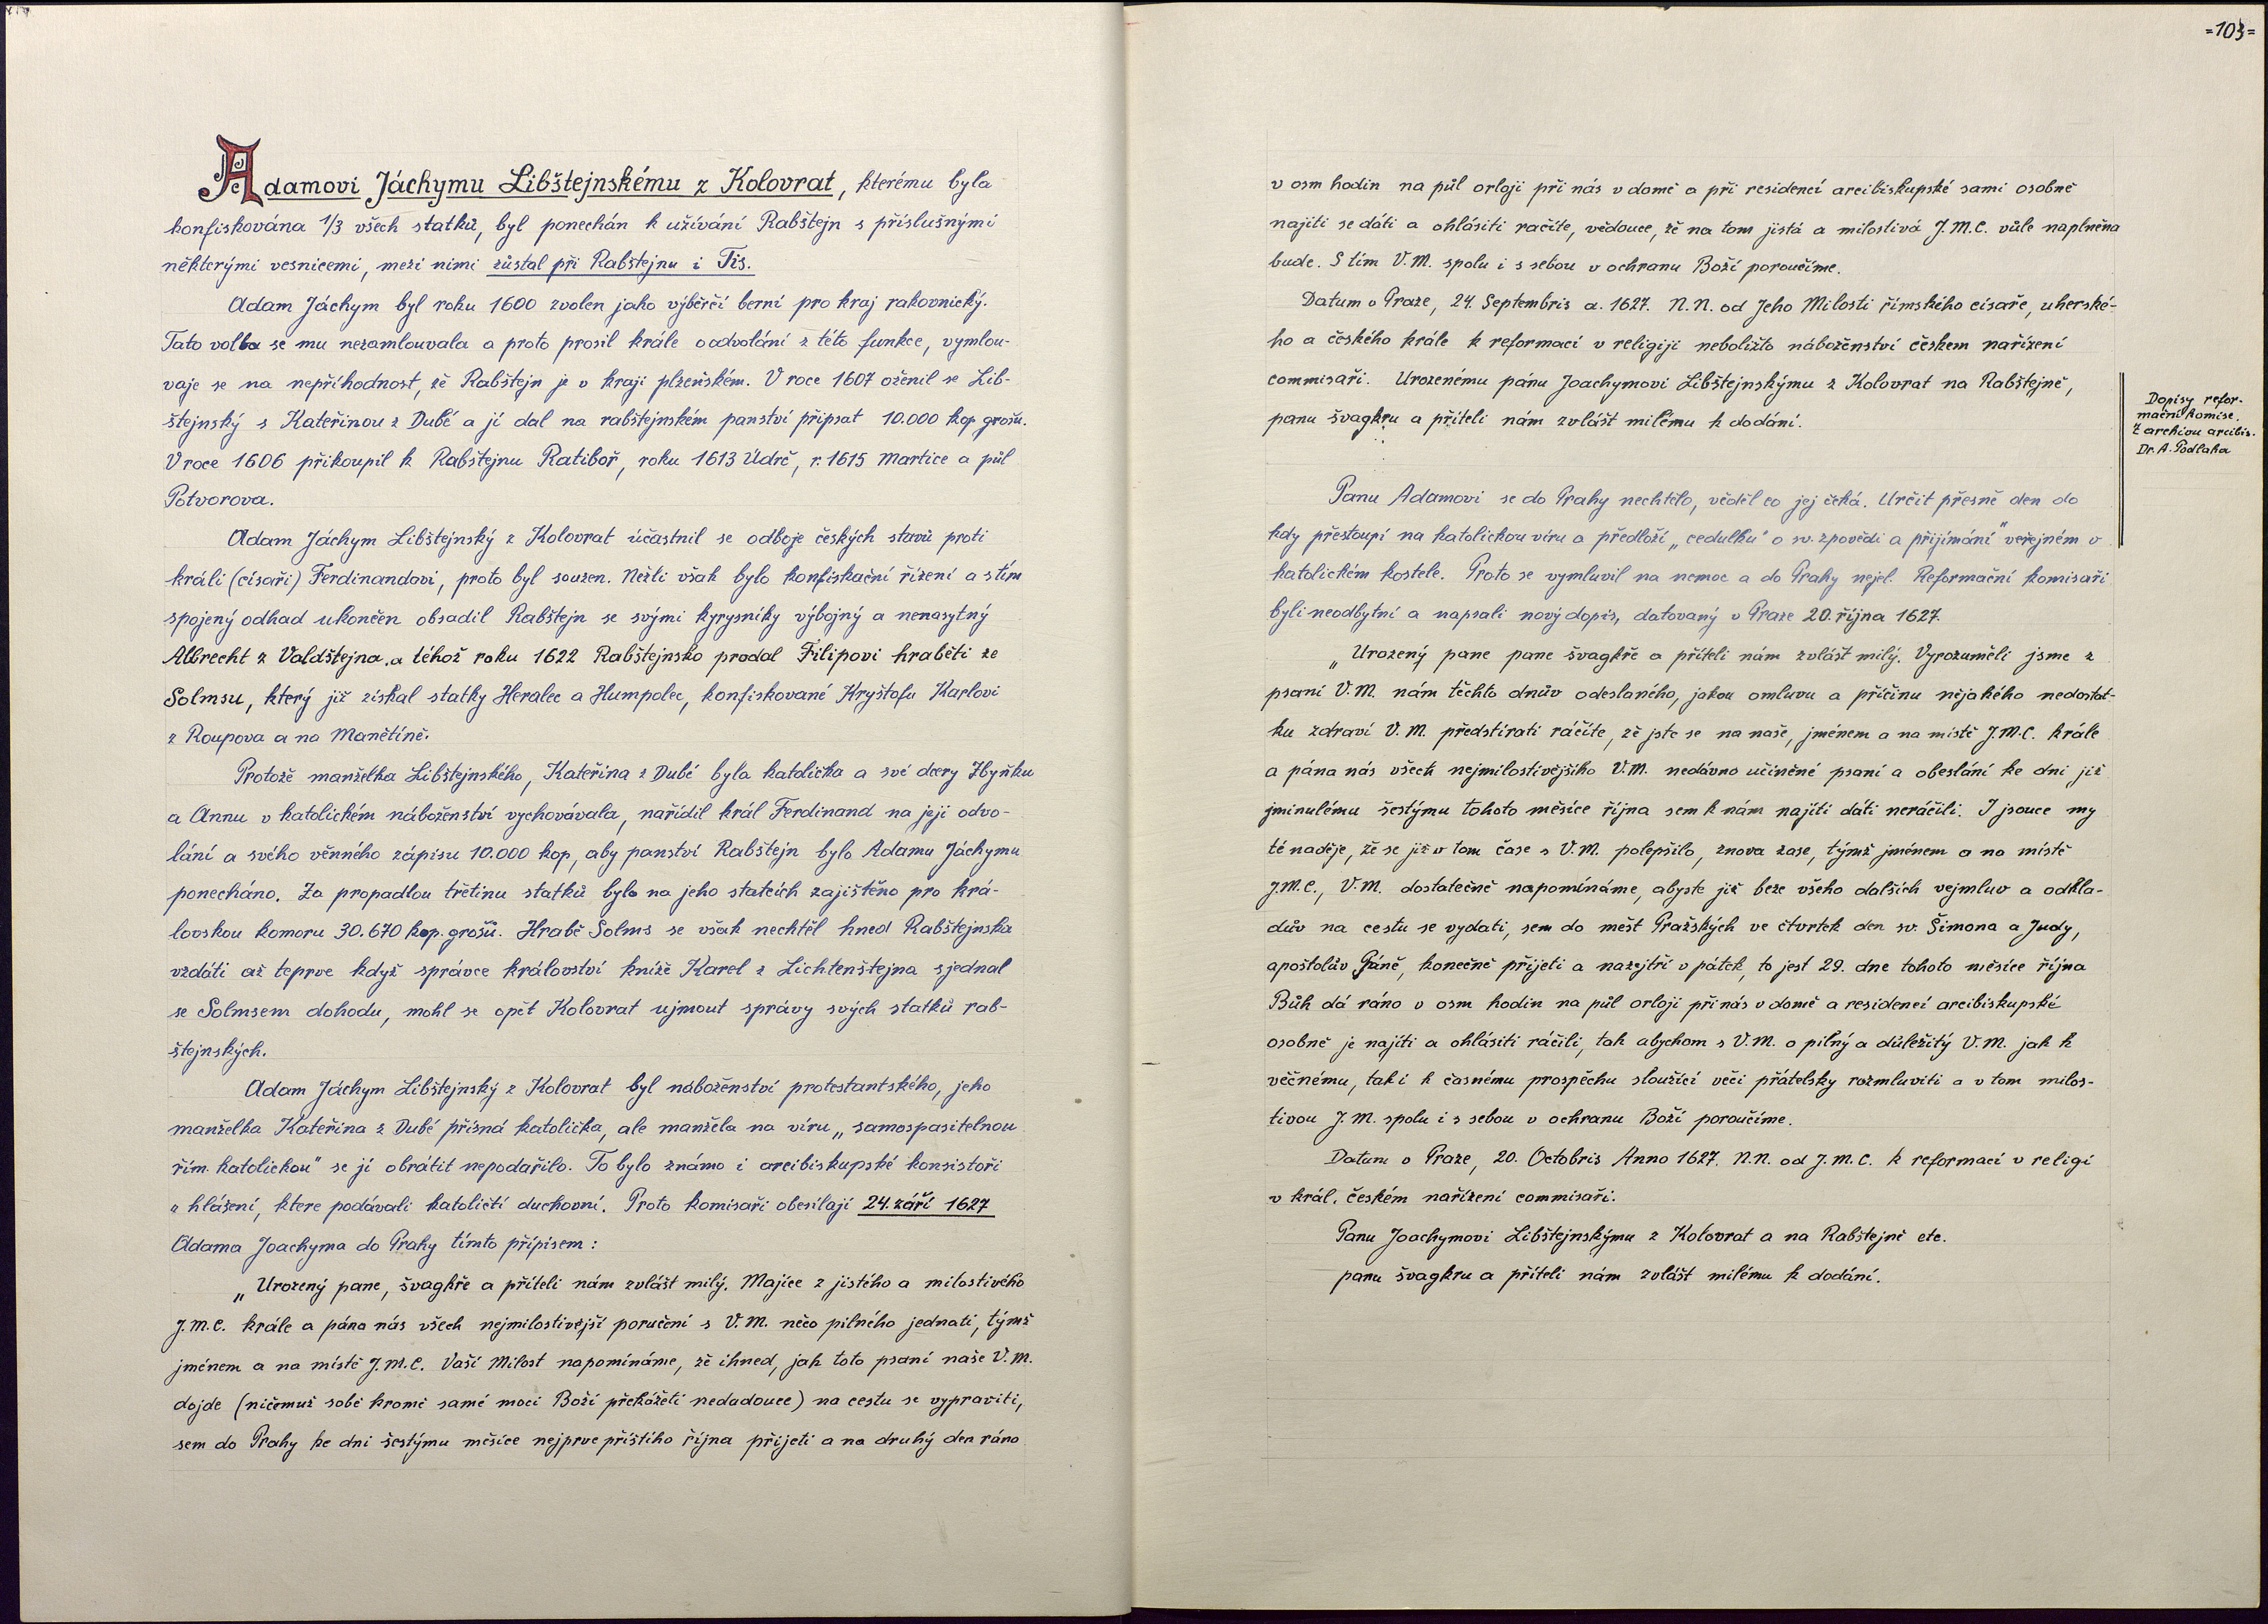 Adamovi Jáchymu Libštejnskému z Kolovrat, kterému byla
konfiskována 1/3 všech statků, byl ponechán k užívání Rabštejn s příslušnými
některými vesnicemi, mezi nimi zůstal při Rabštejnu i Tis.
Adam Jáchym byl roku 1600 zvolen jako výběrčí berní pro kraj rakovnický.
Tato volba se mu nezamlouvala a proto prosil krále o odvolání z této funkce, vymlou-
vaje se na nepříhodnost, že Rabštejn je v kraji plzeňském. V roce 1607 oženil se Lib-
štejnský s Kateřinou z Dubé a jí dal na rabštejnském panství připsat 10.000 kop grošů.
V roce 1606 přikoupil k Rabštejnu Ratiboř, roku 1613 Údrč, r. 1615 Martice a půl
Potvorova.
Adam Jáchym Libštejnský z Kolovrat účastnil se odboje českých stavů proti
králi (císaři) Ferdinandovi, proto byl souzen. Nežli však bylo konfiskační řízení a s tím
spojený odhad ukončen obsadil Rabštejn se svými kyrysníky výbojný a nenasytný
Albrecht z Valdštejna, a téhož roku 1622 Rabštejnsko prodal Filipovi hraběti ze
Solmsu, který již získal statky Heralec a Humpolec, konfiskované Kryštofu Karlovi
z Roupova a na Manětíně.
Protože manželka Libštejnského, Kateřina z Dubé byla katolička a své dcery Zbyňku
a Annu v katolickém náboženství vychovávala, nařídil král Ferdinand na její odvo-
lání a svého věnného zápisu 10.000 kop, aby panství Rabštejn bylo Adamu Jáchymu
ponecháno. Za propadlou třetinu statků bylo na jeho statcích zajištěno pro krá-
lovskou komoru 30.670 kop. grošů. Hrabě Solms se však nechtěl hned Rabštejnska
vzdáti až teprve když správce království kníže Karel z Lichtenštejna sjednal
se Solmsem dohodu, mohl se opět Kolovrat ujmout správy svých statků rab-
štejnských.
Adam Jáchym Libštejnský z Kolovrat byl náboženství protestantského, jeho
manželka Kateřina z Dubé přísná katolička, ale manžela na víru „samospasitelnou
řím. katolickou" se jí obrátit nepodařilo. To bylo známo i arcibiskupské konsistoři
z hlášení, ktere podávali katoličtí duchovní. Proto komisaři obesílají 24. září 1627
Adama Joachyma do Prahy tímto přípisem:
„Urozený pane, švagkře a příteli nám zvlášt milý. Majíce z jistého a milostivého
J.M.C. krále a pána nás všech nejmilostivější poručení s V.M. něco pilného jednati, týmž
jménem a na místě J.M.C. Vaší Milost napomínáme, že ihned, jak toto psaní naše V.M.
dojde (ničemuž sobě kromě samé moci Boží překážeti nedadouce) na cestu se vypraviti,
sem do Prahy ke dni šestýmu měsíce nejprve příštího října přijeti a na druhý den ráno
=103=
v osm hodin na půl orloji při nás v domě a při residencí arcibiskupské sami osobně
najíti se dáti a ohlásiti račíte, vědouce, že na tom jistá a milostivá J.M.C. vůle naplněna
bude. S tím V.M. spolu i s sebou v ochranu Boží poroučíme.
Datum v Praze, 24. Septembris a. 1627. N.N. od Jeho Milosti římského císaře, uherské-
ho a českého krále k reformací v religiji neboližto náboženství českem nařízení
commisaři. Urozenému pánu Joachymovi Libštejnskýmu z Kolovrat na Rabštejně,
panu švagkru a příteli nám zvlášt milému k dodání.
Dopisy refor-
mační komise.
Z archivu arcibis.
Dr. A. Podlaha
Panu Adamovi se do Prahy nechtělo, věděl co jej čeká. Určit přesně den do
kdy přestoupí na katolickou víru a předloží „cedulku" o sv. zpovědi a přijímání" veřejném v
katolickém kostele. Proto se vymluvil na nemoc a do Prahy nejel. Reformační komisaři
byli neodbytní a napsali nový dopis, datovaný v Praze 20. října 1627.
„Urozený pane pane švagkře a příteli nám zvlášt milý. Vyrozuměli jsme z
psaní V.M. nám těchto dnův odeslaného, jakou omluvu a příčinu nějakého nedostat-
ku zdraví V.M. předstírati ráčíte, že jste se na naše, jménem a na místě J.M.C. krále
a pána nás všech nejmilostivějšího V.M. nedávno učiněné psaní a obeslání ke dni již
jminulému šestýmu tohoto měsíce října sem k nám najíti dáti neráčili. I jsouce my
té naděje, že se již v tom čase s V.M. polepšilo, znova zase, týmž jménem a na místě
J.M.C., V.M. dostatečně napomínáme, abyste již beze všeho dalších vejmluv a odkla-
dův na cestu se vydati, sem do měst Pražských ve čtvrtek den sv. Šimona a Judy,
apoštolův Páně, konečně přijeti a nazejtří v pátek, to jest 29. dne tohoto měsíce října
Bůh dá ráno v osm hodin na půl orloji při nás v domě a residencí arcibiskupské
osobně je najíti a ohlásiti ráčili, tak abychom s V.M. o pilný a důležitý V.M. jak k
věčnému, tak i k časnému prospěchu sloužící věci přátelsky rozmluviti a v tom milos-
tivou J.M. spolu i s sebou v ochranu Boží poroučíme.
Datum v Praze, 20. Octobris Anno 1627. N.N. od J.M.C. k reformací v religí
v král. českém nařízení commisaři.
Panu Joachymovi Libštejnskýmu z Kolovrat a na Rabštejně etc.
panu švagkru a příteli nám zvlášt milému k dodání.